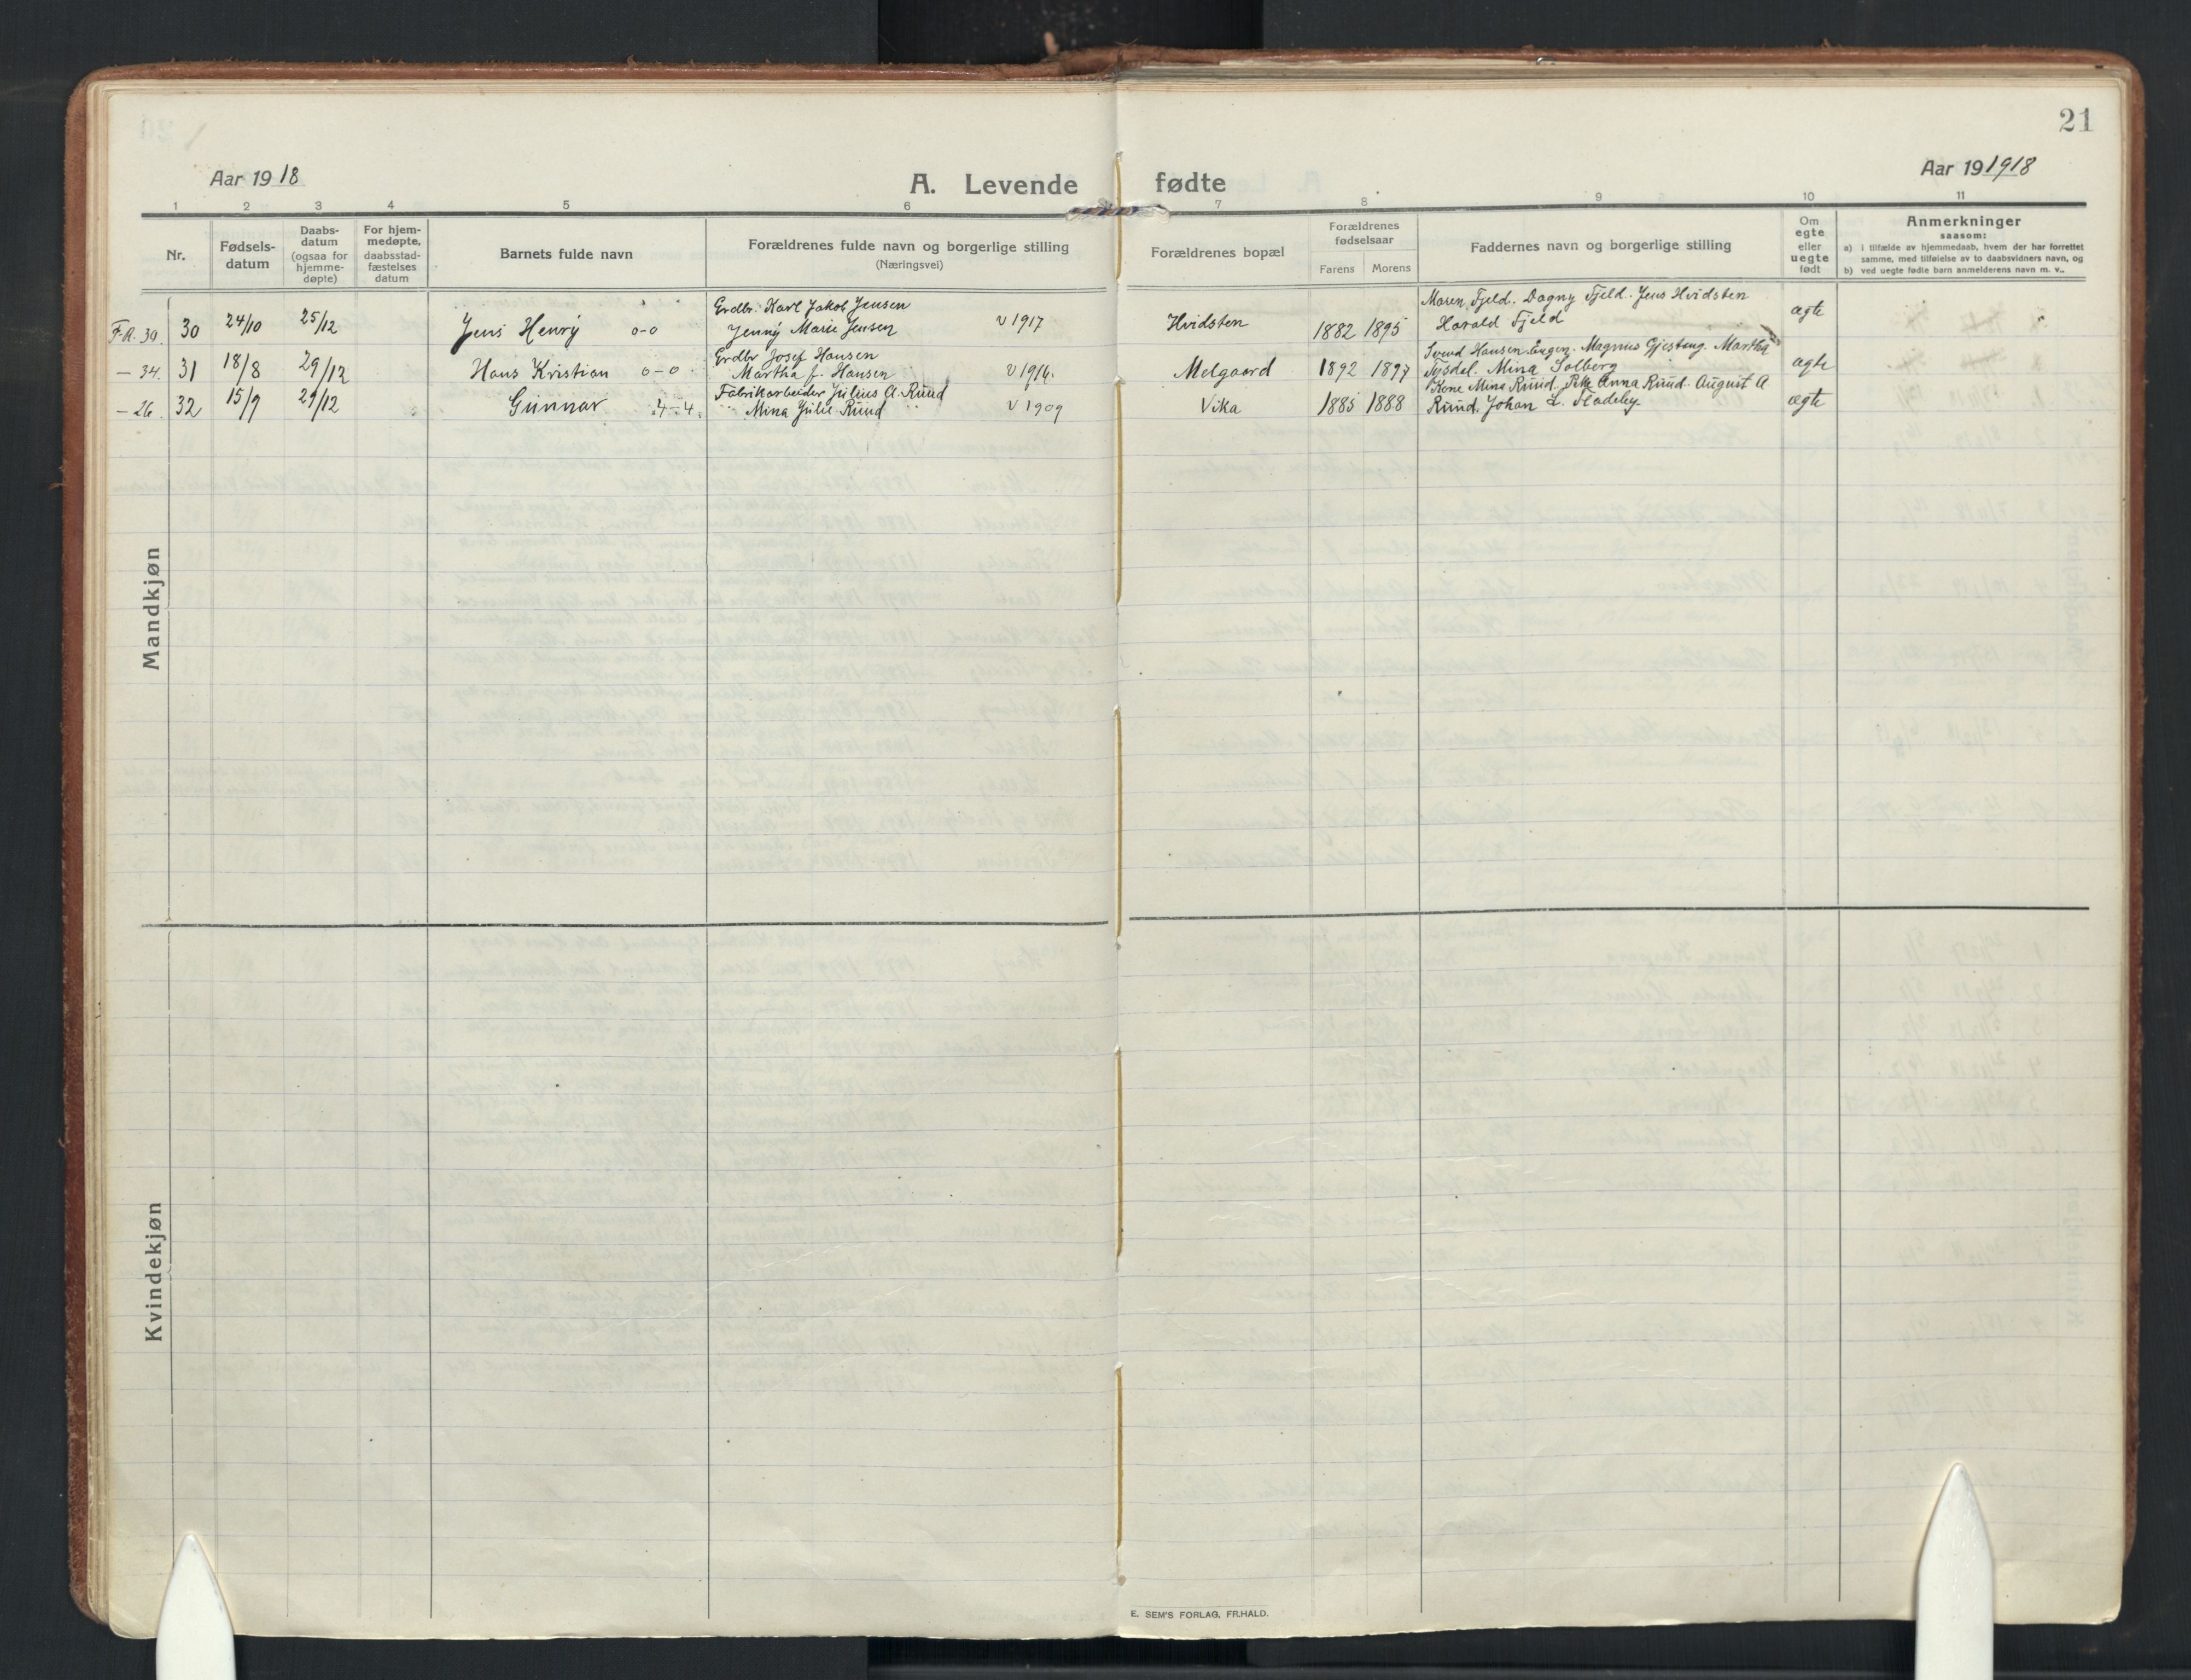 21
Aar 1918
A. Levende fødte
Aar 19 1918
1 2 3 4 5 6 7 8 9 10 11
Nr.
Fødsels-
datum
Daabs-
datum
(ogsaa for
hjemme-
døpte)
For hjem-
medøpte,
daabsstad-
fæstelses
datum
Barnets fulde navn
Forældrenes fulde navn og borgerlige stilling
(Næringsvei)
Forældrenes bopæl
Forældrenes
fødselsaar
Farens Morens
Faddernes navn og borgerlige stilling
Om
egte
eller
uegte
født
Anmerkninger
saasom:
a) i tilfælde av hjemmedaab, hvem der har forrettet
samme, med tilføielse av to daabsvidners navn, og
b) ved uegte fødte barn anmelderens navn m. v..
Mandkjøn
F.R. 30. 30 24/10 25/12 Jens Henry 0-0
Grdbr. Karl Jakob Jensen
Jenny Marie Jensen v 1917
Hvidsten 1882 1895
Maren Fjeld. Dagny Fjeld. Jens Hvidsten
Harald Fjeld
ægte
— 34. 31 18/8 29/12 Hans Kristian 0-0
Grdbr Josef Hansen
Martha f. Hansen v 1916.
Melgaard 1892 1897
Svend Hansen. Magnus Gjestang. Martha
Mina Solberg
ægte
— 26. 32 15/9 29/12 Gunnar 4-4
Fabrikarbeider Julius A. Ruud
Mina Julie Ruud v 1909
Vika 1885 1888
Kone Mina Ruud. Anna Ruud. August A
Ruud. Johan L. Sladeby
ægte
Kvindekjøn
E. SEM'S FORLAG, FR.HALD.